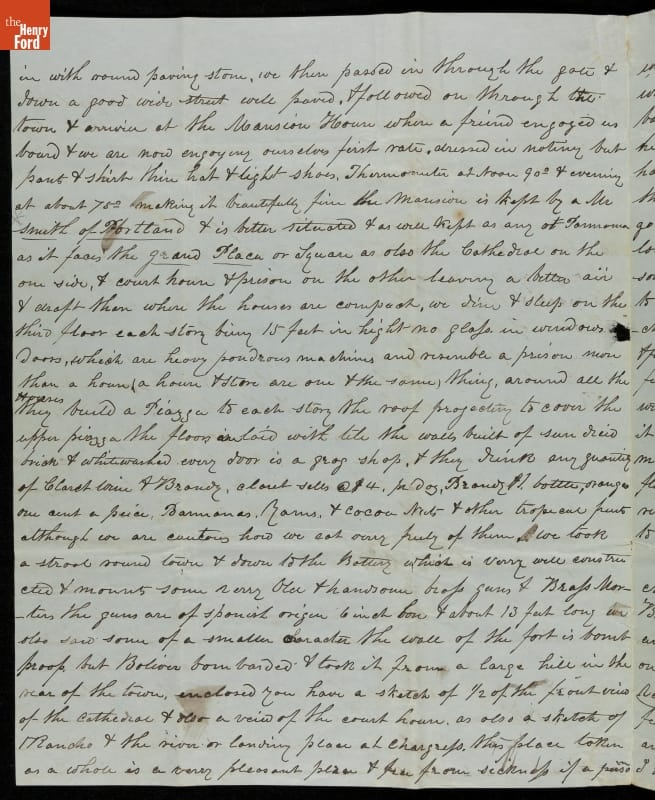 the Henry Ford
in with round paving stone, we then passed in through the gate &
down a good wide street well paved, & followed on through the
town & arrived at the Mansion House where a friend engaged us
board & we are now engoying ourselves first rate, dressed in nothing but
pant & shirt thin hat & light shoes, Thermometer at Noon 90º & evening
at about 75º making it beautifully fine the Mansion is kept by a Mr
Smith of Portland & is better situated & as well kept as any at Pannama
as it faces the grand Placa or Square as also the Cathedral on the
one side, & court house & prison on the other leaving a better air
& draft than where the houses are compact, we dine & sleep on the
third floor each story being 15 feet in hight no glass in windows
doors, which are heavy pondrous machines and resemble a prison more
than a house (a house & store are one & the same) thing, around all the
houses
they build a Piazza to each story the roof projecting to cover the
upper piazza the floors inlaid with tile the walls built of sun dried
brick & whitewashed every door is a grog shop, & they drink any quantity
of Claret wine & Brandy, claret sells @ $4, pr Doz, Brandy $1 bottle, oranges
one cent a peice, Bannanas, Yams, & Cocoa Nuts & other tropical fruit
although we are cautious how we eat very freely of them, we took
a strool round town & down to the Battery which is verry well constru
cted & mounts some verry Olde & handsome brass guns & Brass Mor-
-ters the guns are of spanish origin 6 inch bore & about 13 feet long we
also saw some of a smaller caracter the wall of the fort is bomb
proof but Boliver bombarded & took it from a large hill in the
rear of the town, enclosed you have a sketch of 1/2 of the front view
of the Cathedral & also a veiw of the court house, as also a sketch of
1 Rancho & the river or landing place at Chargress, this place taken
as a whole is a verry pleasant place & free from sickness if a